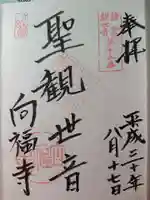 奉拝
平成二十年
八月十七日
聖観世音
向福寺